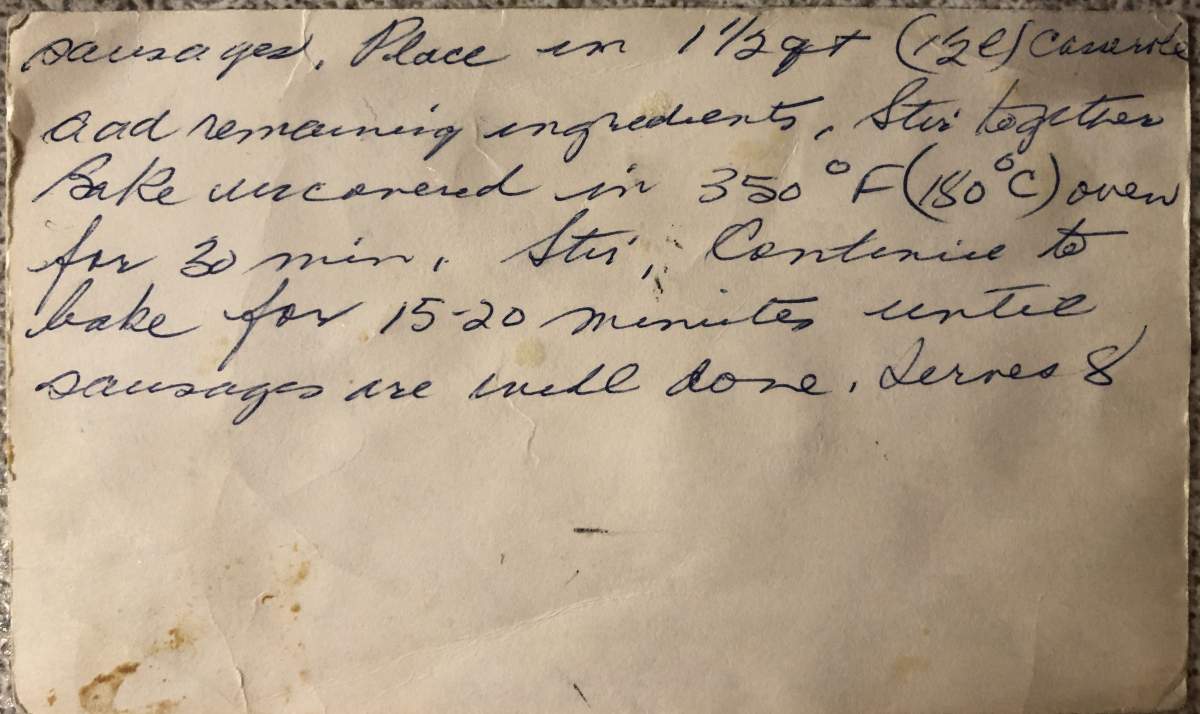 sausages. Place in 1 1/2 qt (1.5 l) Casserole
add remaining ingredients. Stir together
Bake uncovered in 350°F (180°C) oven
for 30 min. Stir. Continue to
bake for 15-20 minutes until
sausages are well done. Serves 8